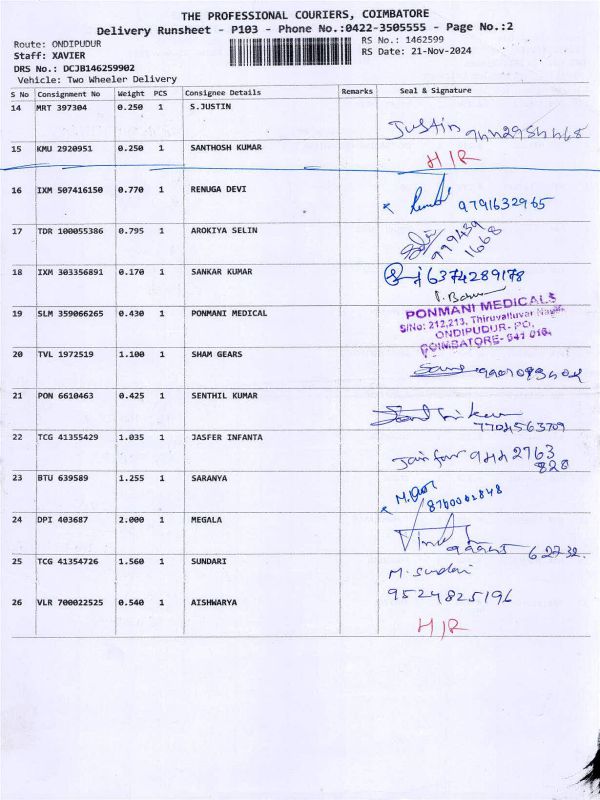 THE PROFESSIONAL COURIERS, COIMBATORE
Delivery Runsheet - P103 - Phone No.:0422-3505555 - Page No.:2
Route: ONDIPUDUR
RS No.: 1462599
Staff: XAVIER
RS Date: 21-Nov-2024
DRS No.: DCJB146259902
Vehicle: Two Wheeler Delivery
S No Consignment No Weight PCS Consignee Details Remarks Seal & Signature
14 MRT 397304 0.250 1 S.JUSTIN
Justin
15 KMU 2920951 0.250 1 SANTHOSH KUMAR
H/R
16 IXM 507416150 0.770 1 RENUGA DEVI
9791632965
17 TDR 100055386 0.795 1 AROKIYA SELIN
979439
1668
18 IXM 303356891 0.170 1 SANKAR KUMAR
6374289178
19 SLM 359066265 0.430 1 PONMANI MEDICAL
PONMANI MEDICALS
S/No: 212,213, Thiruvalluvar Nagar,
ONDIPUDUR- PO,
COIMBATORE- 641 016.
20 TVL 1972519 1.100 1 SHAM GEARS
21 PON 6610463 0.425 1 SENTHIL KUMAR
7704563709
22 TCG 41355429 1.035 1 JASFER INFANTA
944 2763
828
23 BTU 639589 1.255 1 SARANYA
24 DPI 403687 2.000 1 MEGALA
62732
25 TCG 41354726 1.560 1 SUNDARI
M. Sundari
9524825196
26 VLR 700022525 0.540 1 AISHWARYA
H/R